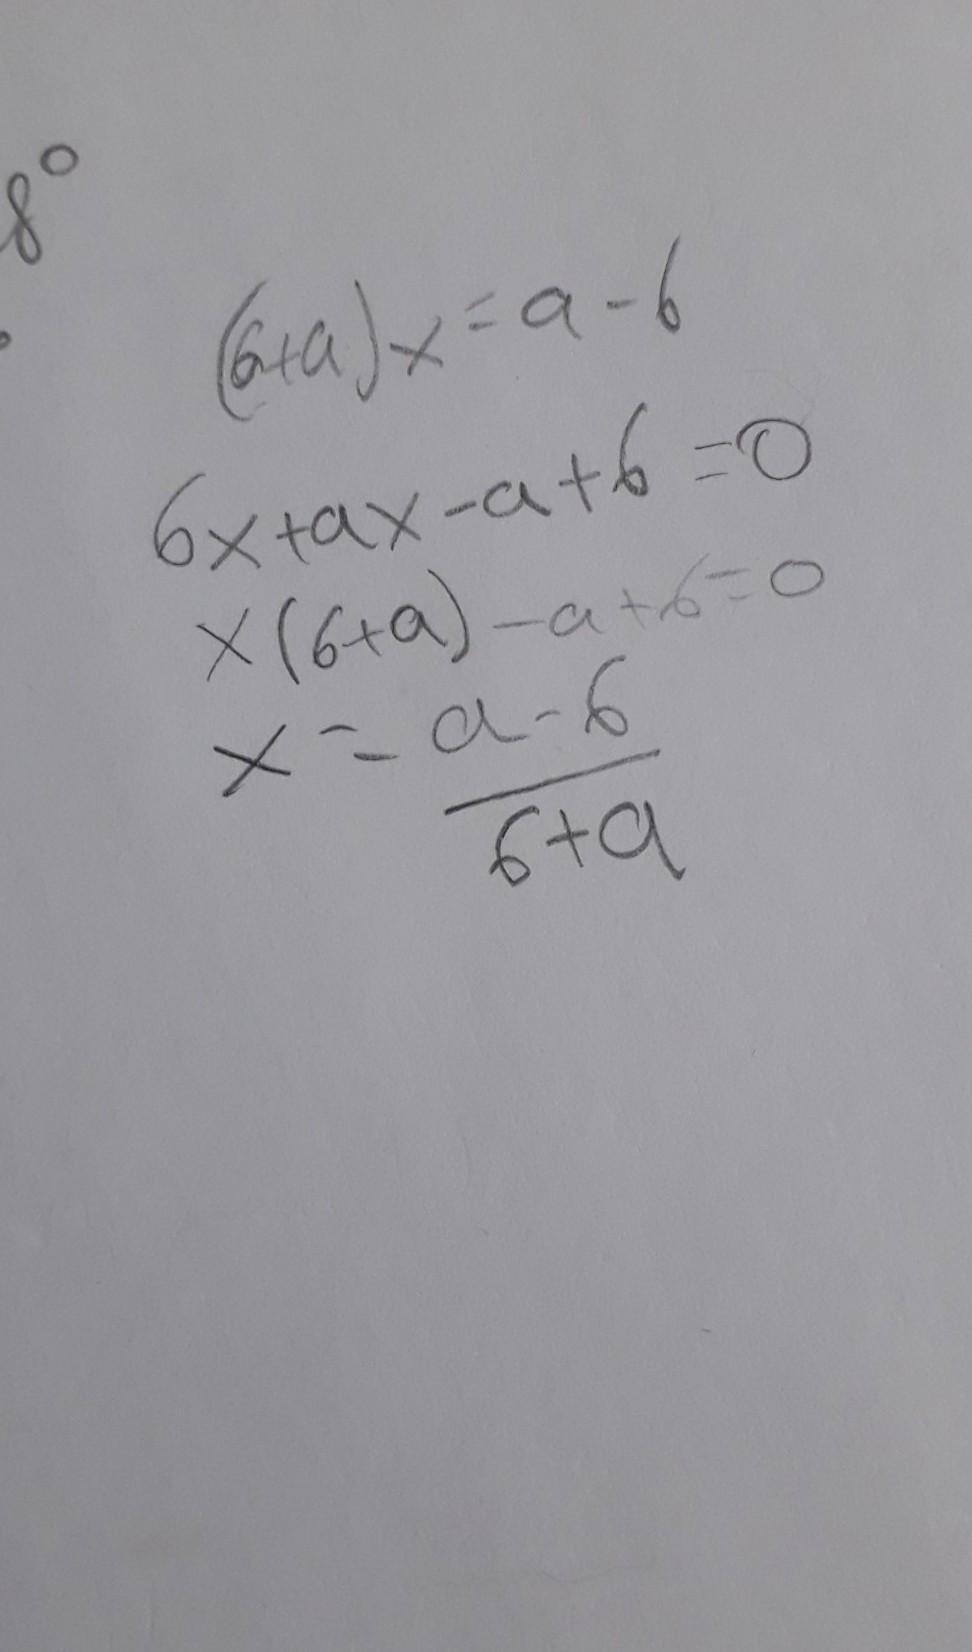 8°
(6+a)x=a-6
6x+ax-a+6=0
x(6+a)-a+6=0
x=a-6
6+a